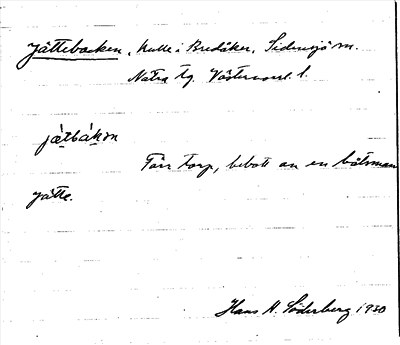 Jättebacken, kulle i Bredåker, Sidensjö sn.
Nätra tg. Västernorrl. l.
jätbákɒn
Förr torp, bebott av en båtsman
Jätte.
Hans H. Söderberg 1930